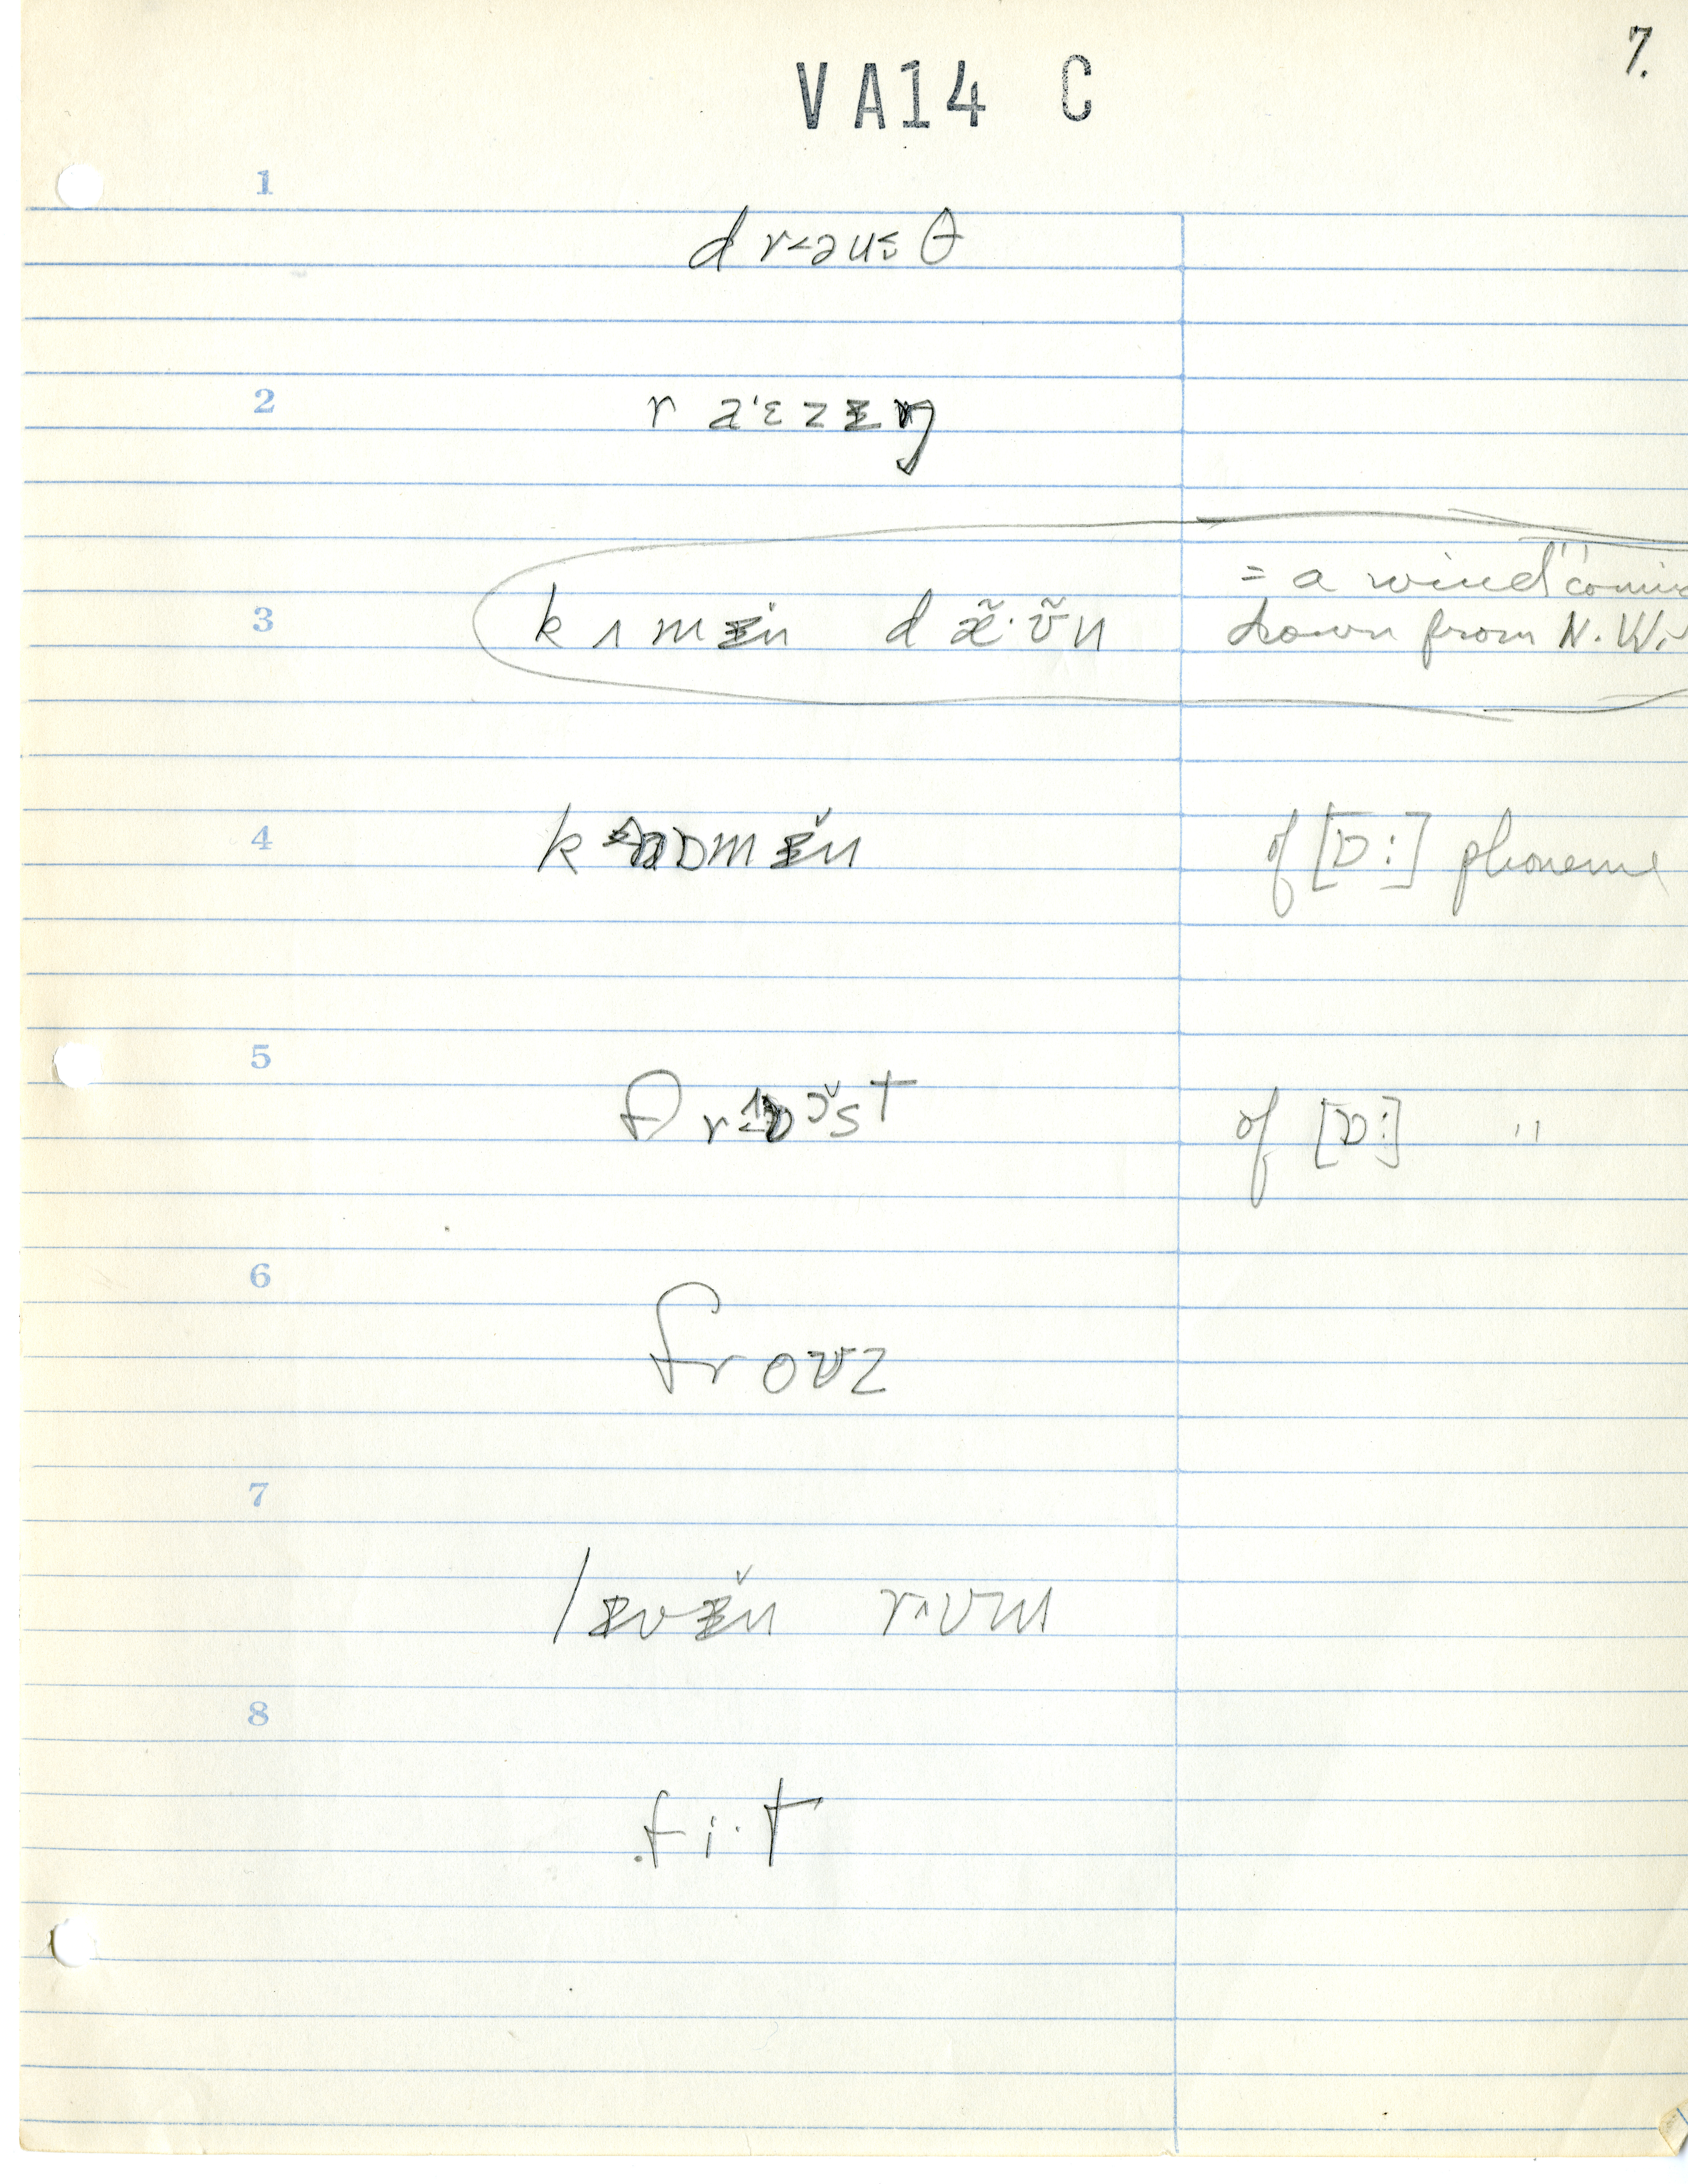 7.
VA14 C
1
d r<əu≤ θ
2
r a'ɛzɪŋ
3
kʌmɪn dæ̃·ʊ̃n
= a wind coming
down from N.W.
4
k ɒmɪ̆n
of [ɒ:] phoneme
5
frɒɔ̆st
of [ɒ:] "
6
froʊz
7
lɪvɪ̆n rʌʊm
8
fi·t